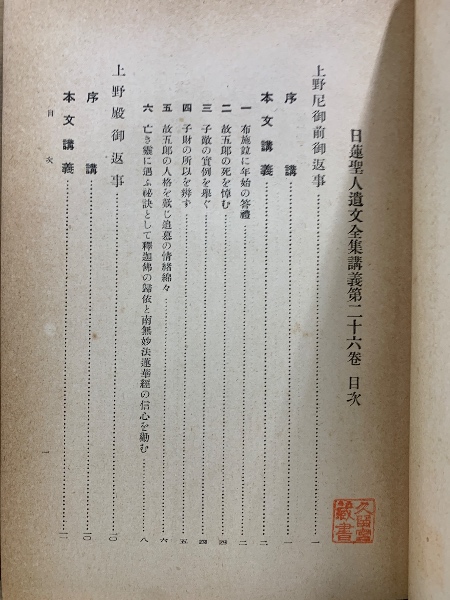 日蓮聖人遺文全集講義第二十六卷 目次
上野尼御前御返事……一
序講……一
本文講義……二
一 布施竝に年始の答禮……二
二 故五郎の死を悼む……四
三 子敵の實例を擧ぐ……四
四 子財の所以を辨ず……五
五 故五郎の人格を歎じ追慕の情緒綿々……六
六 亡き靈に遇ふ祕訣として釋迦佛の歸依と南無妙法蓮華經の信心を勸む……八
上野殿御返事……一〇
序講……一〇
本文講義……一一
目次
一
藏書